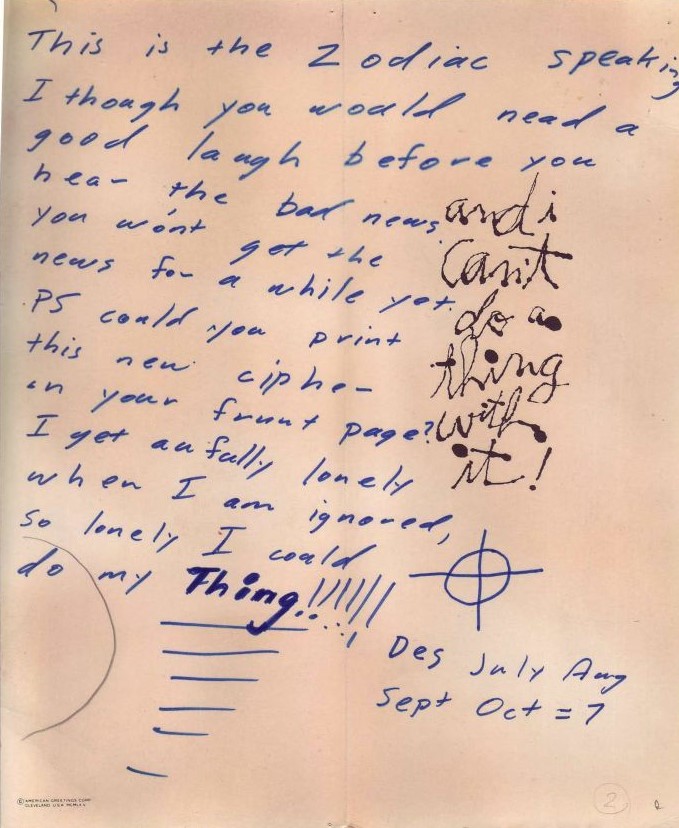 This is the Zodiac speaking
I though you would nead a
good laugh before you
hear the bad news.
you won't get the
news for a while yet.
PS could you print
this new cipher
in your frunt page?
I get aufully lonely
when I am ignored,
So lonely I could
do my Thing!!!!!!
and i
can't
do a
thing
with
it!
Des July Aug
Sept Oct = 7
© AMERICAN GREETINGS CORP.
CLEVELAND U.S.A.
2